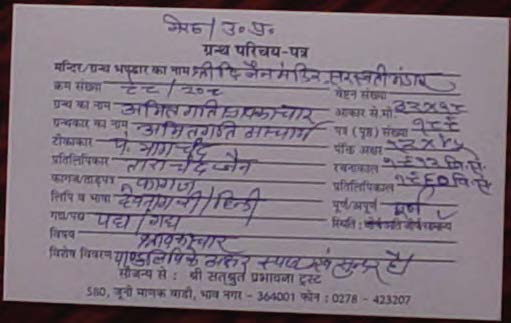 मेरठ / उ.प्र.
ग्रन्थ परिचय-पत्र
मन्दिर/ग्रन्थ भण्डार का नाम श्री दि जैन मंदिर, सरस्वती भंडार
क्रम संख्या वेष्टन संख्या
ग्रन्थ का नाम अमितगति श्रावकाचार आकार से.मी.
ग्रन्थकार का नाम अमितगति आचार्य पत्र (पृष्ठ) संख्या
टीकाकार पं. भागचंद पंक्ति अक्षर
प्रतिलिपिकार ताराचंद जैन रचनाकाल
कागज/ताड़पत्र कागज प्रतिलिपिकाल
लिपि व भाषा देवनागरी / हिन्दी पूर्ण/अपूर्ण पूर्ण
गद्य/पद्य पद्य / गद्य स्थिति :
विषय श्रावकाचार
विशेष विवरण पाण्डुलिपि के अक्षर स्पष्ट एवं सुन्दर है।
सौजन्य से : श्री सत्श्रुत प्रभावना ट्रस्ट
580, जूनी माणक वाडी, भाव नगर - 364001 फोन : 0278 - 423207